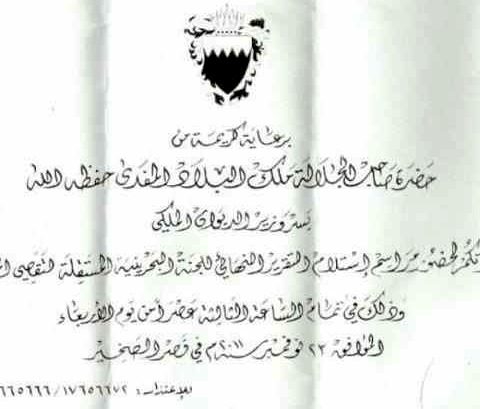 برعاية كريمة من
حضرة صاحب الجلالة ملك البلاد المفدى حفظه الله
يسر وزير الديوان الملكي
لحضور مراسم إستلام التقرير النهائي للجنة البحرينية المستقلة لتقصي
وذلك في تمام الساعة الثالثة عصراً من يوم الأربعاء
الموافق ٢٣ نوفمبر ٢٠١١م في قصر الصخير
للإعتذار: ١٧٦٥٦٦٧٢/